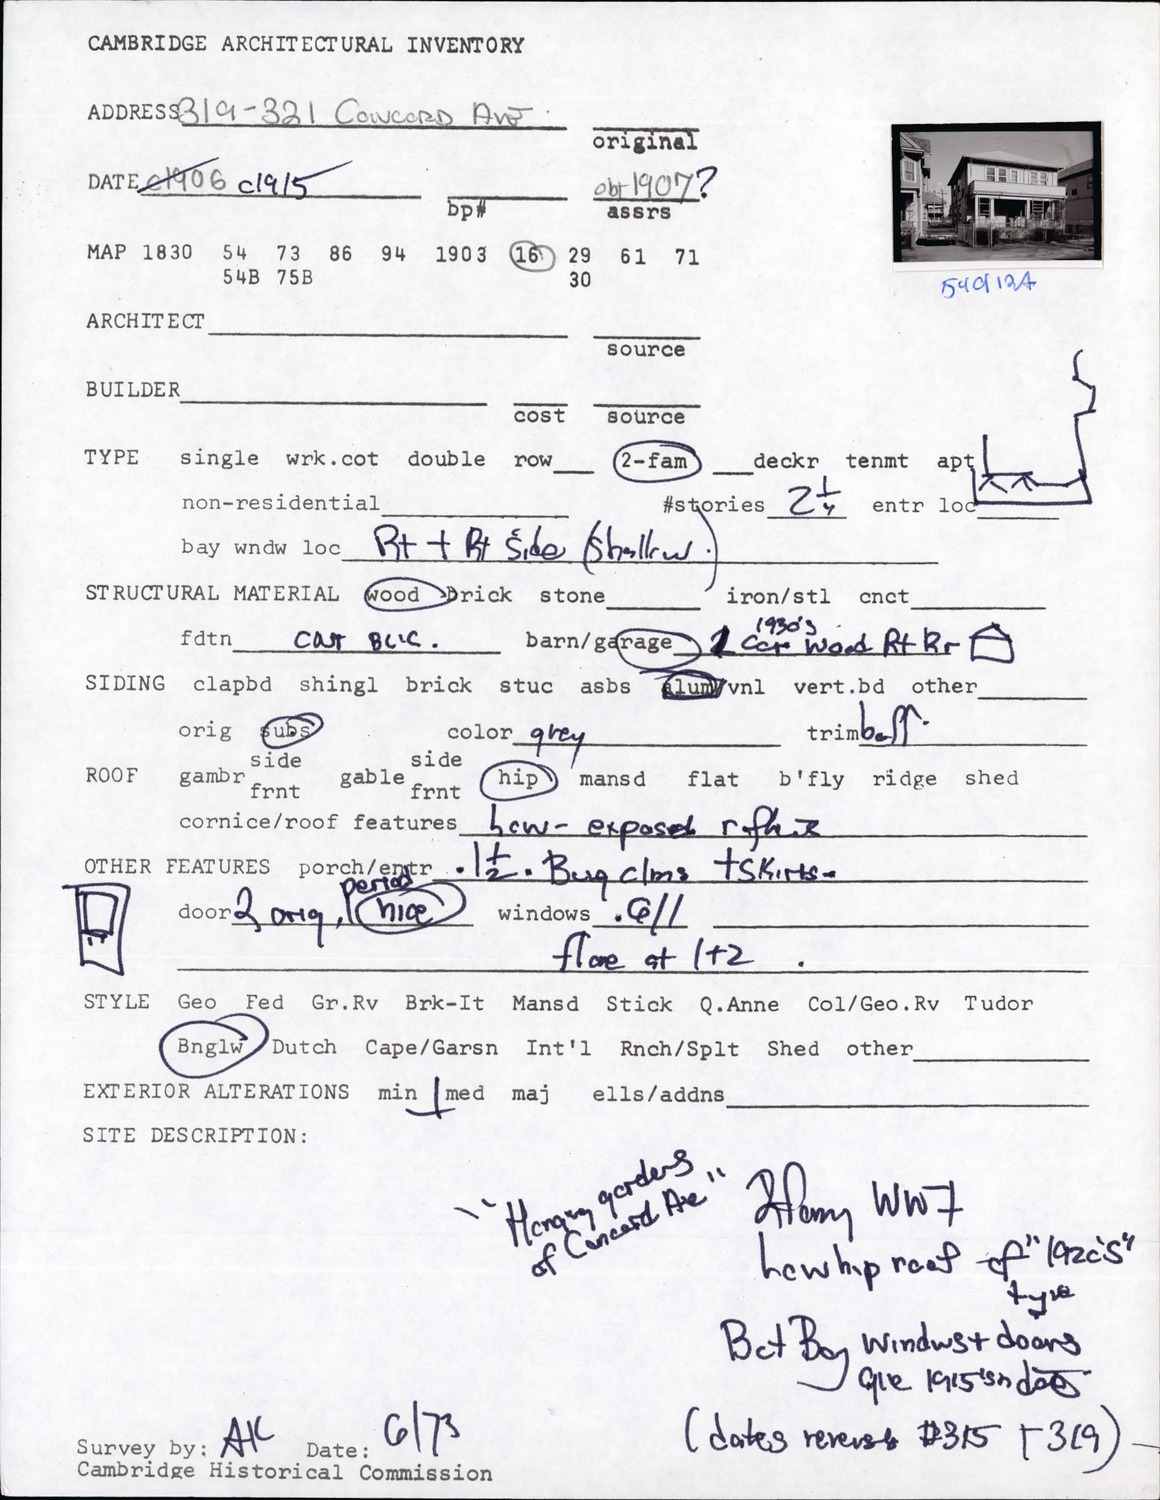 CAMBRIDGE ARCHITECTURAL INVENTORY
ADDRESS 319-321 Concord Ave
original
DATE c1906 c1915 obt 1907?
bp# assrs
MAP 1830 54 73 86 94 1903 16 29 61 71
54B 75B 30
540/12A
ARCHITECT
source
BUILDER
cost source
TYPE single wrk.cot double row 2-fam deckr tenmt apt
non-residential #stories 2 1/4 entr loc
bay wndw loc Rt + Rt Side (shallow)
STRUCTURAL MATERIAL wood brick stone iron/stl cnct
1930's
fdtn cast BLK. barn/garage 2 car wood Rt Rr
SIDING clapbd shingl brick stuc asbs alum/vnl vert.bd other
orig subs color grey trim buff.
side side
ROOF gambr gable hip mansd flat b'fly ridge shed
frnt frnt
cornice/roof features low - exposed
OTHER FEATURES porch/entr . 1 1/2 . Bung clms + skirts -
period
door 2 orig, nice windows . 6/1
flare at 1+2 .
STYLE Geo Fed Gr.Rv Brk-It Mansd Stick Q.Anne Col/Geo.Rv Tudor
Bnglw Dutch Cape/Garsn Int'l Rnch/Splt Shed other
EXTERIOR ALTERATIONS min med maj ells/addns
SITE DESCRIPTION:
"Hanging gardens
of Concord Ave"
2 fam WW I
Low hip roof of "1920's"
type
But Bay windws + doors
are 1915'sh date
(dates reverse #315 + 319)
Survey by: AK Date: 6/73
Cambridge Historical Commission